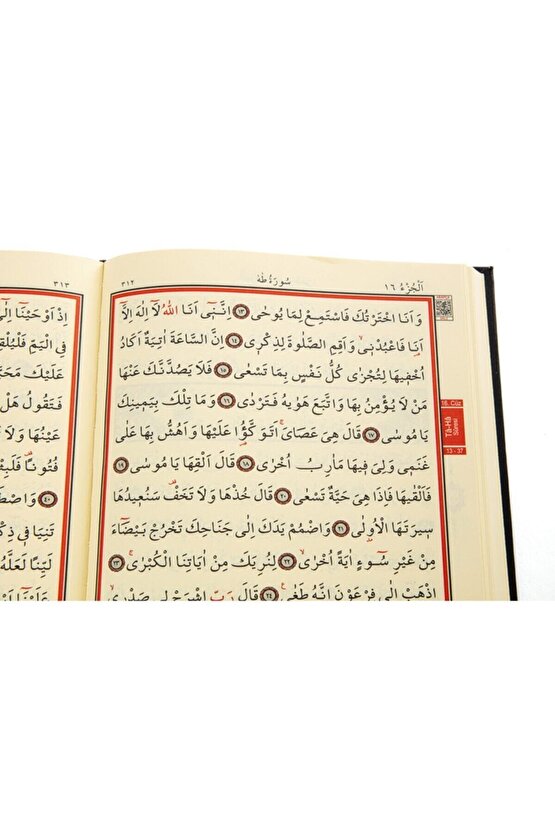 اَلْجُزْءُ ١٦
سُورَةُ طٰهٰ
٣١٢
وَاَنَا اخْتَرْتُكَ فَاسْتَمِعْ لِمَا يُوحٰى ﴿١٣﴾ اِنَّنٖٓي اَنَا اللّٰهُ لَٓا اِلٰهَ اِلَّٓا
اَنَا فَاعْبُدْنٖيۙ وَاَقِمِ الصَّلٰوةَ لِذِكْرٖي ﴿١٤﴾ اِنَّ السَّاعَةَ اٰتِيَةٌ اَكَادُ
اُخْفٖيهَا لِتُجْزٰى كُلُّ نَفْسٍ بِمَا تَسْعٰى ﴿١٥﴾ فَلَا يَصُدَّنَّكَ عَنْهَا
مَنْ لَا يُؤْمِنُ بِهَا وَاتَّبَعَ هَوٰيهُ فَتَرْدٰى ﴿١٦﴾ وَمَا تِلْكَ بِيَمٖينِكَ
يَا مُوسٰى ﴿١٧﴾ قَالَ هِيَ عَصَايَۚ اَتَوَكَّؤُ۬ا عَلَيْهَا وَاَهُشُّ بِهَا عَلٰى
غَنَمٖي وَلِيَ فٖيهَا مَاٰرِبُ اُخْرٰى ﴿١٨﴾ قَالَ اَلْقِهَا يَا مُوسٰى ﴿١٩﴾
فَاَلْقٰيهَا فَاِذَا هِيَ حَيَّةٌ تَسْعٰى ﴿٢٠﴾ قَالَ خُذْهَا وَلَا تَخَفْ۠ سَنُعٖيدُهَا
سٖيرَتَهَا الْاُو۫لٰى ﴿٢١﴾ وَاضْمُمْ يَدَكَ اِلٰى جَنَاحِكَ تَخْرُجْ بَيْضَٓاءَ
مِنْ غَيْرِ سُٓوءٍ اٰيَةً اُخْرٰىۙ ﴿٢٢﴾ لِنُرِيَكَ مِنْ اٰيَاتِنَا الْكُبْرٰىۚ ﴿٢٣﴾
اِذْهَبْ اِلٰى فِرْعَوْنَ اِنَّهُ طَغٰى۟ ﴿٢٤﴾ قَالَ رَبِّ اشْرَحْ لٖي صَدْرٖيۙ
16. Cüz
Tâ-Hâ
Sûresi
13 - 37
٣١٣
اِذْ اَوْحَيْنَٓا اِلٰٓى
فِي الْيَمِّ فَلْيُلْقِ
عَلَيْكَ مَحَبَّ
فَتَقُولُ هَلْ
عَيْنُهَا وَلَا
فُتُونًا۠ فَلَبِثْ
﴿٤٠﴾ وَاصْطَ
تَنِيَا فٖي ذِكْ
لَيِّنًا لَعَلَّهُ
عَلَيْنَٓا اَ